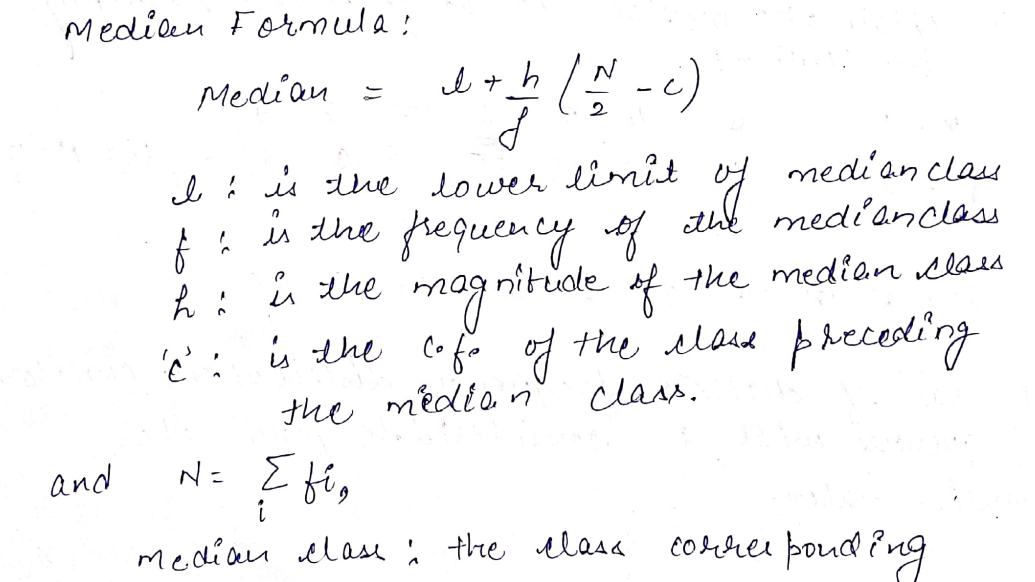 Median Formula:
Median = l + h/f (N/2 - c)
l : is the lower limit of median class
f : is the frequency of the median class
h : is the magnitude of the median class
'c' : is the c.f. of the class preceding
the median class.
and N = Σ_i fi,
median class : the class corresponding